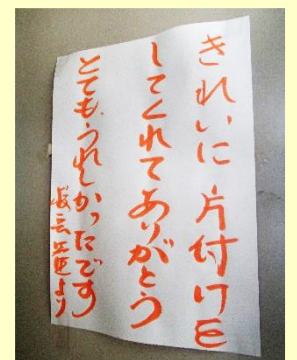 きれいに片付けを
してくれてありがとう
とても、うれしかったです
より